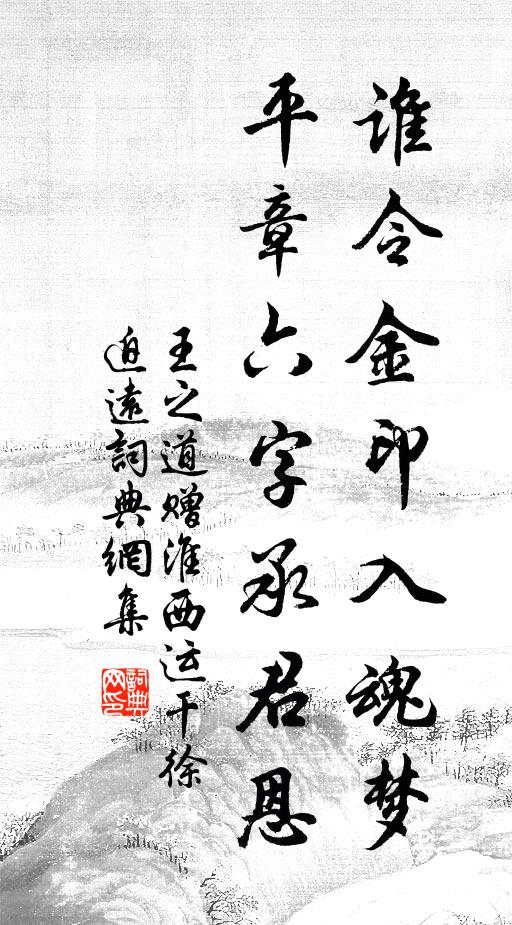 谁令金印入魂梦
平章六字承君恩
王之道赠淮西运干徐
近远詞典網集
詞典
网印